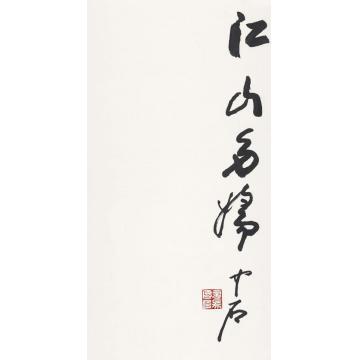 江山多娇 中石